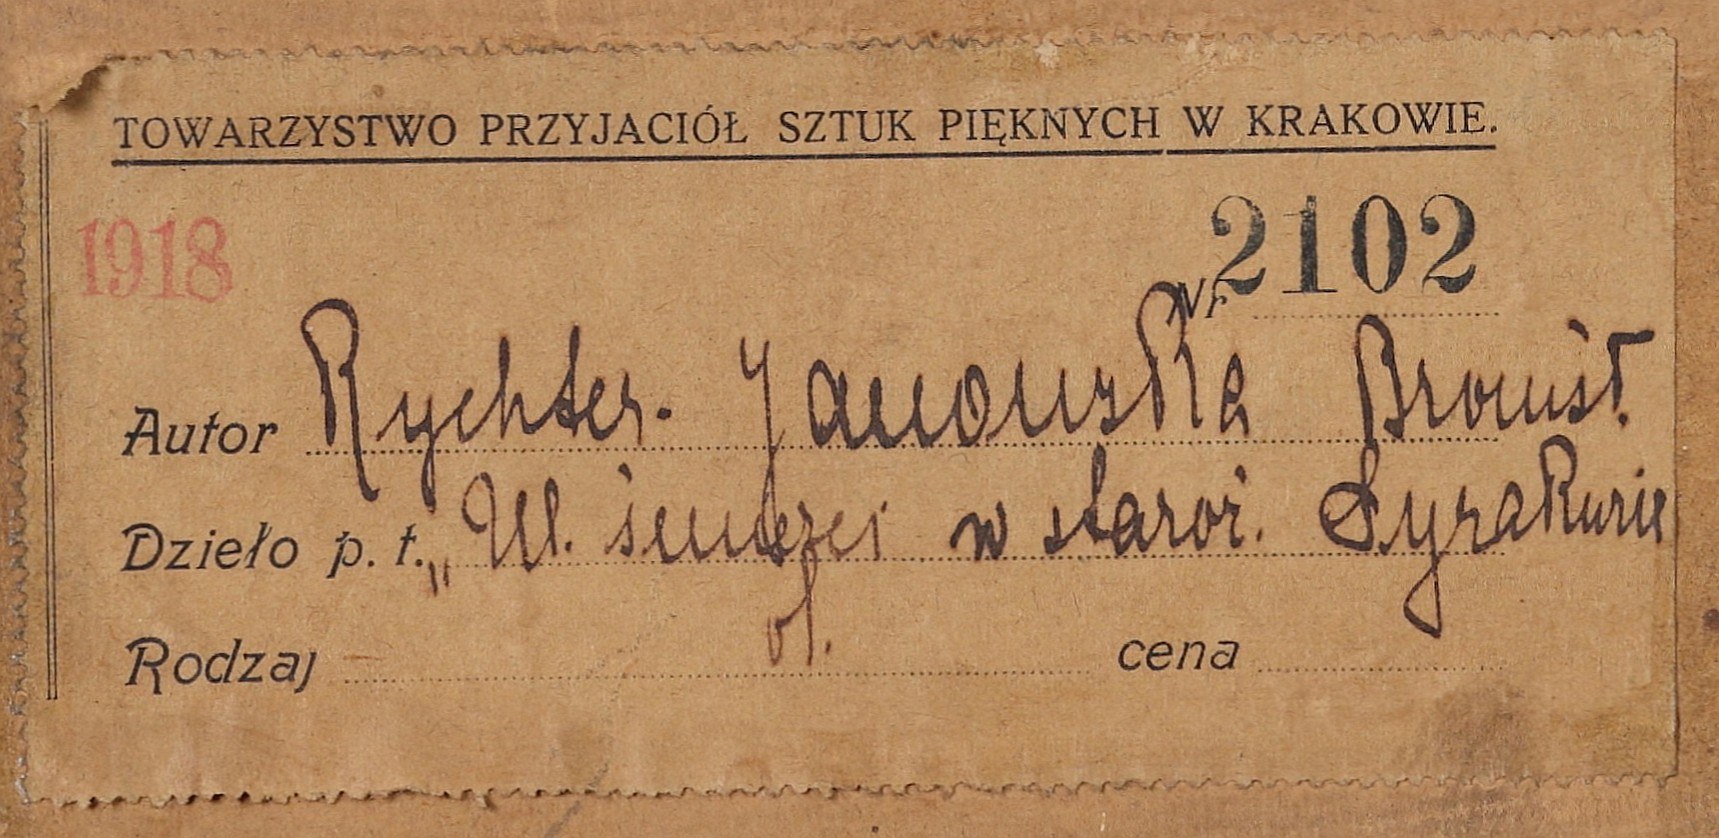 TOWARZYSTWO PRZYJACIÓŁ SZTUK PIĘKNYCH W KRAKOWIE.
1918
Nr 2102
Autor Rychter. Janowska Bronisł.
Dzieło p. t. „Ul. śmierci w staroż. Syrakuzie
Rodzaj ol. cena